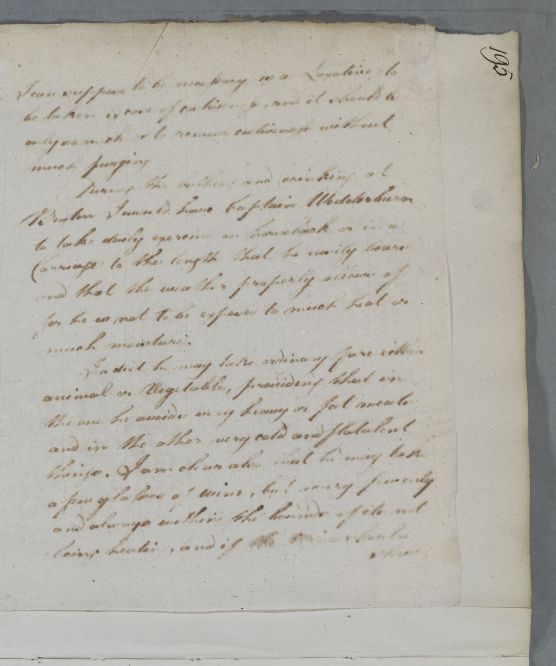 195
I can suppose to be necessary is a Laxative to
be taken in case of costiveness, and it should be
only so much as to remove costiveness without
much purging
During the bathing and drinking at
Buxton I would have Captain Wedderburn
to take daily exercise on horseback or in a
Carriage to the length that he easily bears
and that the weather properly allows of
for he is not to be exposed to much heat or
much moisture.
In diet he may take ordinary fare either
animal or Vegetable, providing that in
the one he avoids very heavy or fat meats
and in the other very cold and flatulent
things. I am clear also that he may take
a few glasses of wine, but very
and always within the bounds of its not
being heating, and if should